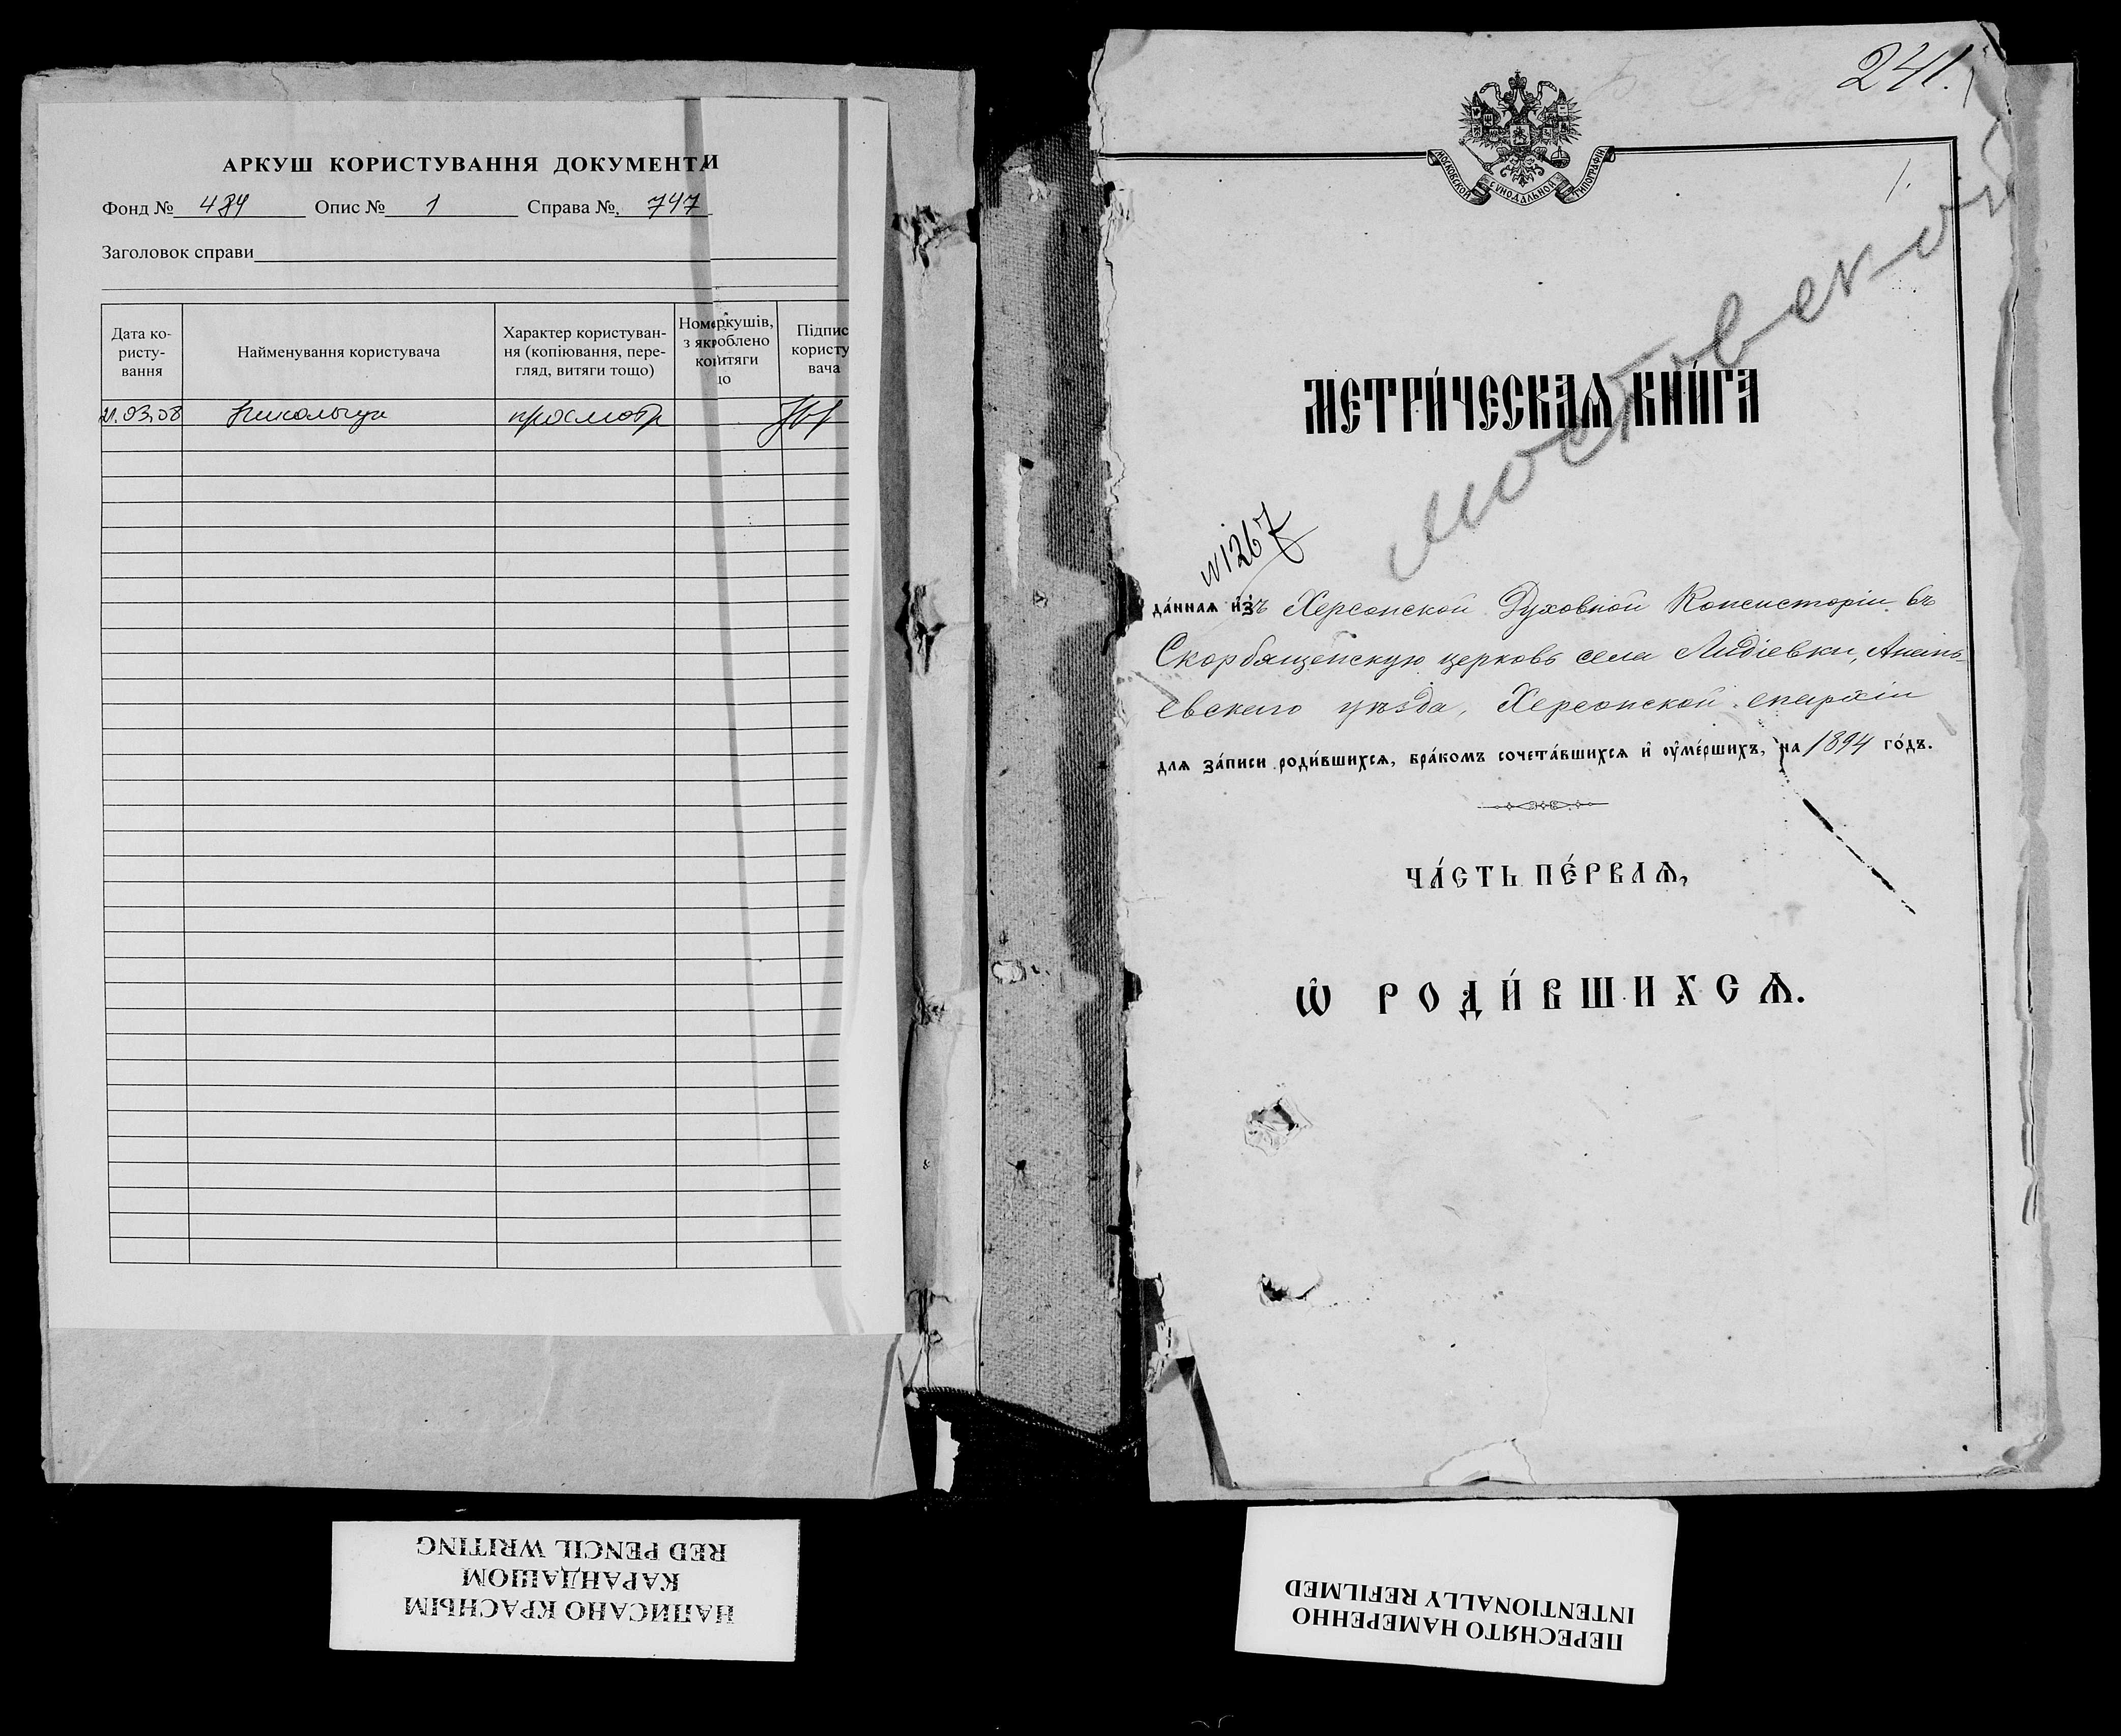 АРКУШ КОРИСТУВАННЯ ДОКУМЕНТИ
Фонд № 484 Опис № 1 Справа №. 747
Заголовок справи
Дата ко-
ристу-
вання
Найменування користувача
Характер користуван-
ня (копіювання, пере-
гляд, витяги тощо)
Підпис
користу
вача
21.03.08 просмотр
241.
МОСКОВСКОЙ СѴНОДАЛЬНОЙ ТИПОГРАФІИ
1.
Мостовской
МЕТРИ́ЧЕСКАѦ КНИ́ГА
№1267
да́ннаѧ и҆зъ Херсонской Духовной Консисторіи въ
Скорбященскую церковь села Лидіевки, Анань-
евскаго уѣзда, Херсонской епархіи
для за́писи роди́вшихсѧ, бра́комъ сочета́вшихсѧ и҆ оу҆ме́ршихъ, на 1894 го́дъ.
ЧА́СТЬ ПЕ́РВАѦ,
Ѡ҆ РОДИ́ВШИХСѦ.
НАПИСАНО КРАСНЫМ
КАРАНДАШОМ
RED PENCIL WRITING
ПЕРЕСНЯТО НАМЕРЕННО
INTENTIONALLY REFILMED